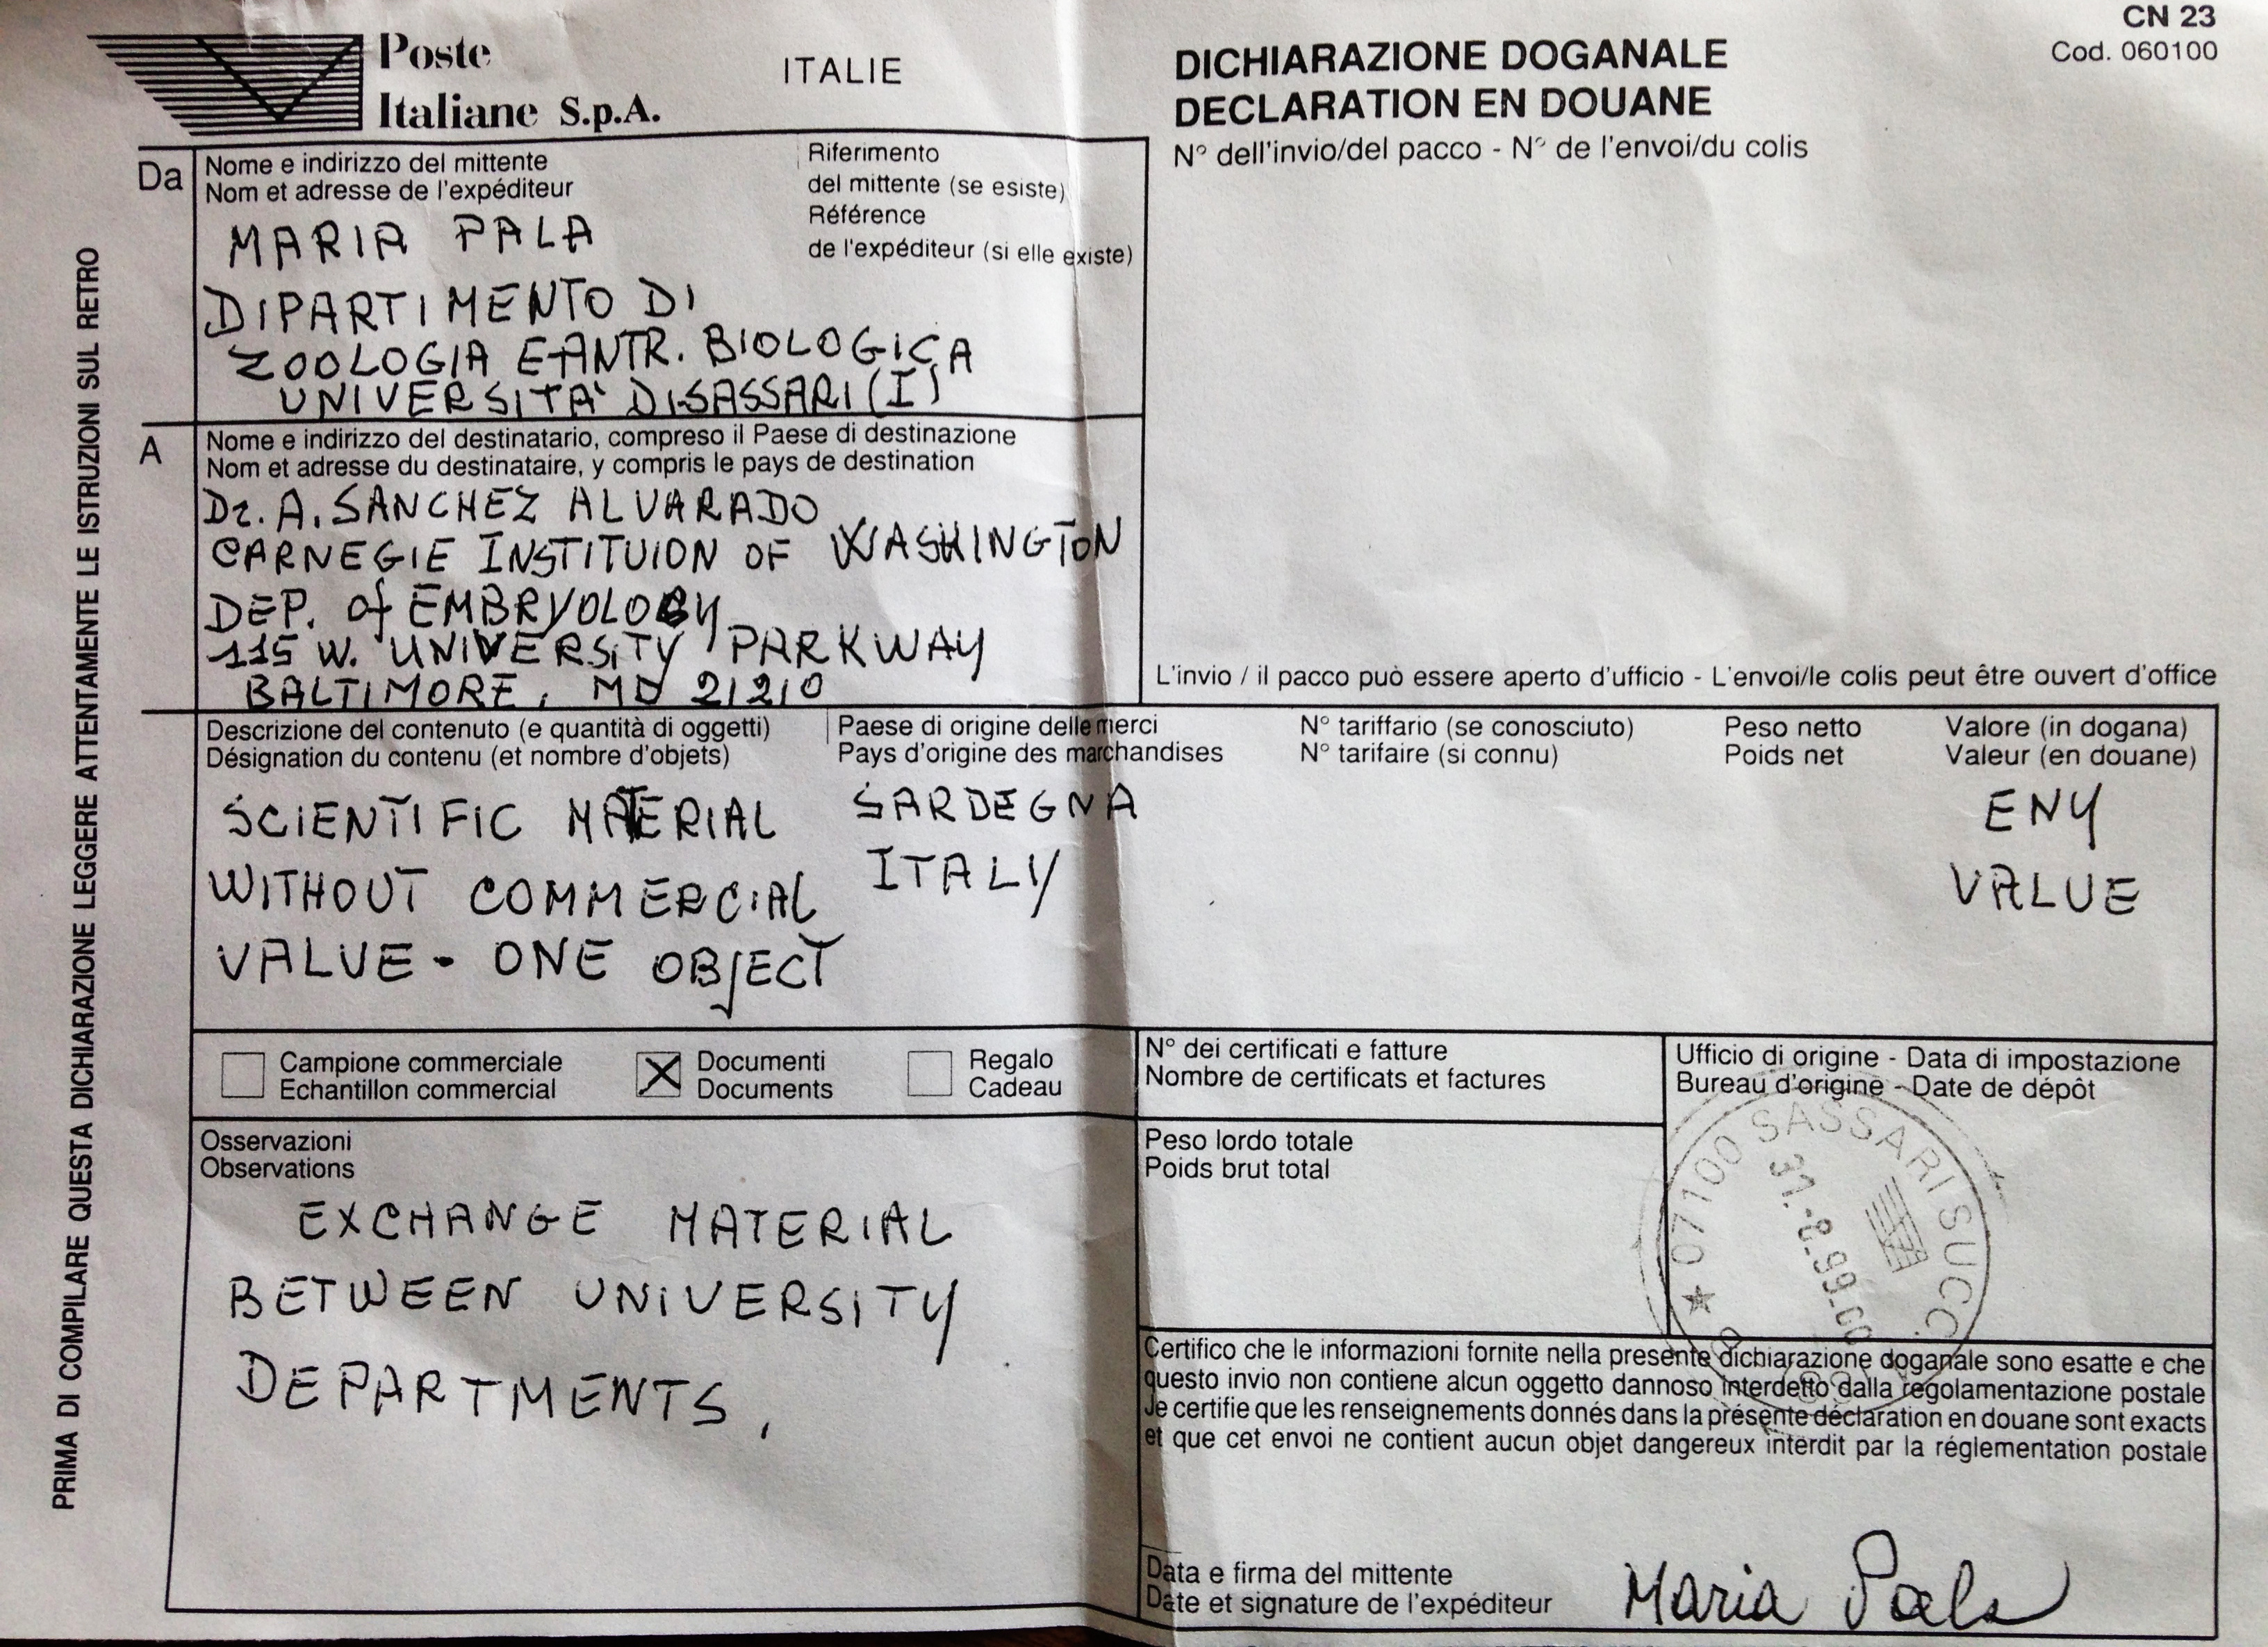 CN 23
Cod. 060100
Poste
Italiane S.p.A.
ITALIE
DICHIARAZIONE DOGANALE
DECLARATION EN DOUANE
N° dell'invio/del pacco - N° de l'envoi/du colis
Da
Nome e indirizzo del mittente
Nom et adresse de l'expéditeur
Riferimento
del mittente (se esiste)
Référence
de l'expéditeur (si elle existe)
MARIA PALA
DIPARTIMENTO DI
ZOOLOGIA E ANTR. BIOLOGICA
UNIVERSITA' DI SASSARI (I)
A
Nome e indirizzo del destinatario, compreso il Paese di destinazione
Nom et adresse du destinataire, y compris le pays de destination
Dr. A. SANCHEZ ALVARADO
CARNEGIE INSTITUION OF WASHINGTON
DEP. of EMBRYOLOGY
115 W. UNIVERSITY PARKWAY
BALTIMORE, MD 21210
L'invio / il pacco può essere aperto d'ufficio - L'envoi/le colis peut être ouvert d'office
Descrizione del contenuto (e quantità di oggetti)
Désignation du contenu (et nombre d'objets)
Paese di origine delle merci
Pays d'origine des marchandises
N° tariffario (se conosciuto)
N° tarifaire (si connu)
Peso netto
Poids net
Valore (in dogana)
Valeur (en douane)
SCIENTIFIC MATERIAL
WITHOUT COMMERCIAL
VALUE - ONE OBJECT
SARDEGNA
ITALY
ENY
VALUE
Campione commerciale
Echantillon commercial
X
Documenti
Documents
Regalo
Cadeau
N° dei certificati e fatture
Nombre de certificats et factures
Ufficio di origine - Data di impostazione
Bureau d'origine - Date de dépôt
Osservazioni
Observations
EXCHANGE MATERIAL
BETWEEN UNIVERSITY
DEPARTMENTS,
Peso lordo totale
Poids brut total
★ 07100 SASSARI SUCC.
31.-8.99-00
Certifico che le informazioni fornite nella presente dichiarazione doganale sono esatte e che
questo invio non contiene alcun oggetto dannoso interdetto dalla regolamentazione postale
Je certifie que les renseignements donnés dans la présente déclaration en douane sont exacts
et que cet envoi ne contient aucun objet dangereux interdit par la réglementation postale
Data e firma del mittente
Date et signature de l'expéditeur
Maria Pala
PRIMA DI COMPILARE QUESTA DICHIARAZIONE LEGGERE ATTENTAMENTE LE ISTRUZIONI SUL RETRO